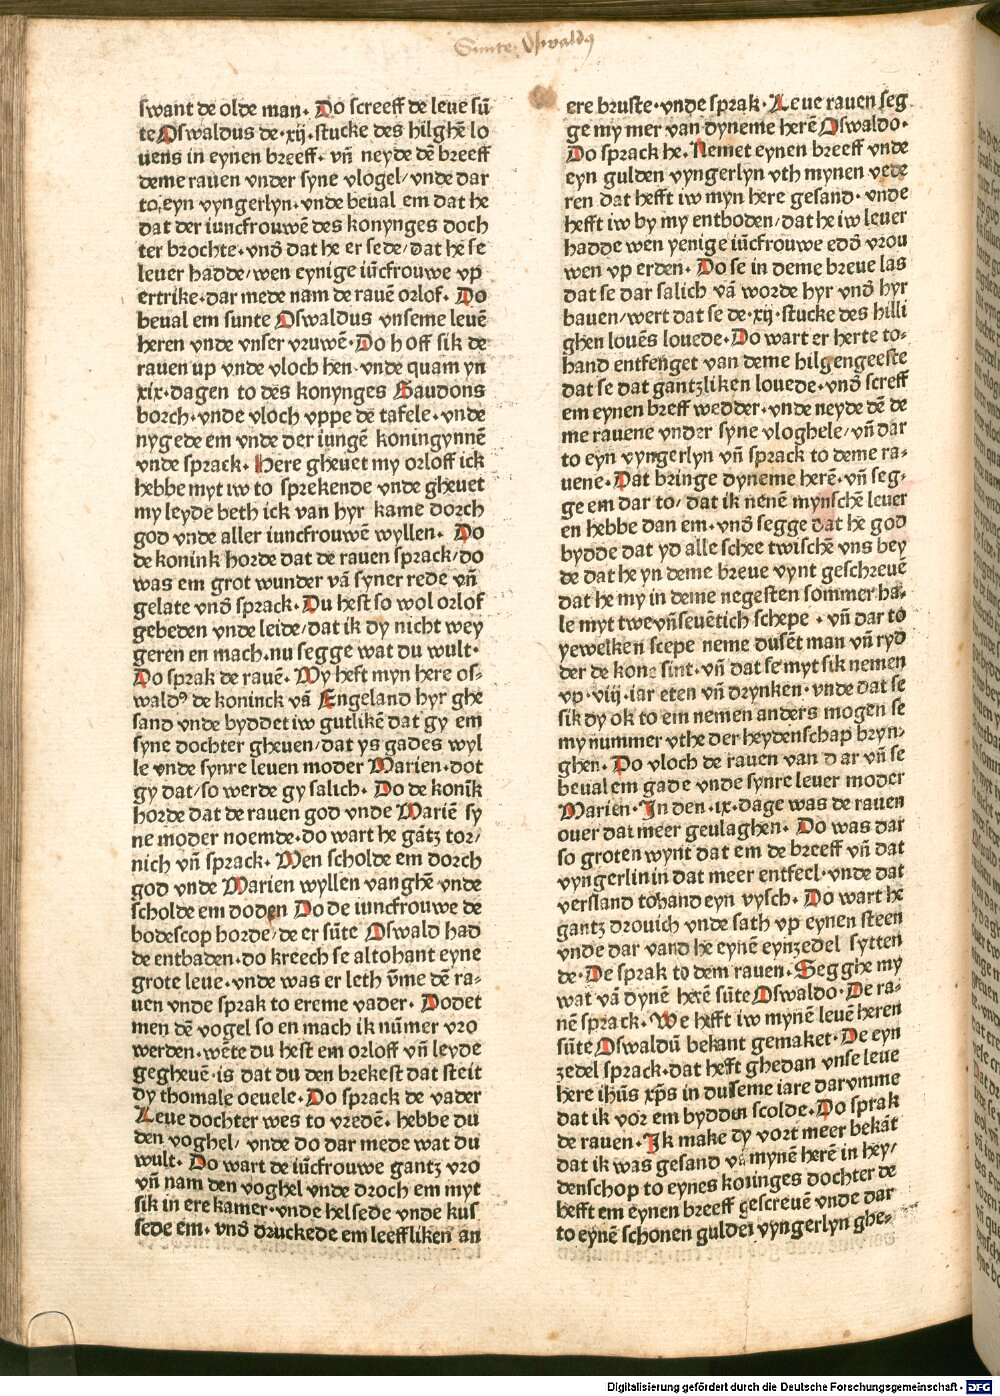 Sunte Oswaldꝰ
swant de olde man. Do screeff de leue sū
te Oswaldus de.xij.stucke des hilghē lo
uens in eynen breeff. vn̄ neyde dē breeff
deme rauen vnder syne vlogel/ vnde dar
to eyn vyngerlyn.vnde beual em dat he
dat der iuncfrouwē des konynges doch
ter brochte.vnō dat he er sede/dat he se
leuer hadde/wen eynige iūcfrouwe vp
ertrike.dar mede nam de rauē orlof. Do
beual em sunte Oswaldus vnseme leuē
heren vnde vnser vruwē.Do hoff sik de
rauen up vnde vloch hen.vnde quam yn
xix.dagen to des konynges Gaudons
borch.vnde vloch vppe de tafele.vnde
nygede em vnde der iungē koningynnē
vnde sprack. Here gheuet my orloff ick
hebbe myt iw to sprekende vnde gheuet
my leyde beth ick van hyr kame dorch
god vnde aller iuncfrouwē wyllen. Do
de konink horde dat de rauen sprack/do
was em grot wunder vā syner rede vn̄
gelate vnō sprack.Du hest so wol orlof
gebeden vnde leide/dat ik dy nicht wey
geren en mach.nu segge wat du wult.
Do sprak de rauē. My heft myn here os-
waldꝰ de koninck vā Engeland hyr ghe
sand vnde byddet iw gutlikē dat gy em
syne dochter gheuen/dat ys gades wyl
le vnde synre leuen moder Marien.dot
gy dat/so werde gy salich. Do de konīk
horde dat de rauen god vnde Mariē sy
ne moder noemde.do wart he gātz tor/
nich vn̄ sprack. Wen scholde em dorch
god vnde Marien wyllen vanghē vnde
scholde em doden Do de iuncfrouwe de
bodescop horde/de er sūte Oswald had
de entbaden.do kreech se altohant eyne
grote leue.vnde was er leth v̄me dē ra-
uen vnde sprak to ereme vader. Dodet
men dē vogel so en mach ik nūmer vro
werden.wēte du hest em orloff vn̄ leyde
gegheuē.is dat du den brekest dat steit
dy thomale oeuele.Do sprack de vader
Leue dochter wes to vredē. hebbe du
den voghel/ vnde do dar mede wat du
wult. Do wart de iūcfrouwe gantz vro
vn̄ nam den voghel vnde droch em myt
sik in ere kamer.vnde helsede vnde kus
sede em. vnō druckede em leeffliken an
ere bruste.vnde sprak.Leue rauen seg
ge my mer van dyneme herē Oswaldo.
Do sprack he. Nemet eynen breeff vnde
eyn gulden vyngerlyn vth mynen vede
ren dat hefft iw myn here gesand. vnde
hefft iw by my entboden/dat he iw leuer
hadde wen yenige iūcfrouwe edō vrou
wen vp erden. Do se in deme breue las
dat se dar salich vā worde hyr vnō hyr
bauen/wert dat se de.xij.stucke des hilli
ghen louēs louede.Do wart er herte to-
hand entfenget van deme hilgengeeste
dat se dat gantzliken louede.vnō screff
em eynen breff wedder.vnde neyde dē de
me rauene vnder syne vloghele/vn̄ dar
to eyn vyngerlyn vn̄ sprack to deme ra-
uene.Dat bringe dyneme herē.vn̄ seg-
ge em dar to/ dat ik nenē mynschē leuer
en hebbe dan em.vnō segge dat he god
bydde dat yd alle schee twischē vns bey
de dat he yn deme breue vynt geschreuē
dat he my in deme negesten sommer ha-
le myt twevn̄seuētich schepe . vn̄ dar to
yewelken scepe neme dusēt man vn̄ ryd
der de kone sint.vn̄ dat se myt sik nemen
vp.viij.iar eten vn̄ drynken.vnde dat se
sik dy ok to ein nemen anders mogen se
my nummer vthe der heydenschap bryn-
ghen. Do vloch de rauen van dar vn̄ se
beual em gade vnde synre leuer moder
Marien.In den.ix.dage was de rauen
ouer dat meer geulaghen. Do was dar
so groten wynt dat em de breeff vn̄ dat
vyngerlin in dat meer entfeel.vnde dat
versland tohand eyn vysch.Do wart he
gantz drouich vnde sath vp eynen steen
vnde dar vand he eynē eynzedel sytten
de.De sprak to dem rauen.Segghe my
wat vā dynē herē sūte Oswaldo.De ra-
nē sprack.We hefft iw mynē leuē heren
sūte Oswaldū bekant gemaket.De eyn
zedel sprack.dat hefft ghedan vnse leue
here ihūs xp̄s in dusseme iare darvmme
dat ik vor em bydden scolde.Do sprak
de rauen.Ik make dy vort meer bekāt
dat ik was gesand vā mynē herē in hey/
denschop to eynes koninges dochter de
hefft em eynen breeff gescreuē vnde dar
to eynē schonen gulden vyngerlyn ghe-
Digitalisierung gefördert durch die Deutsche Forschungsgemeinschaft - DFG